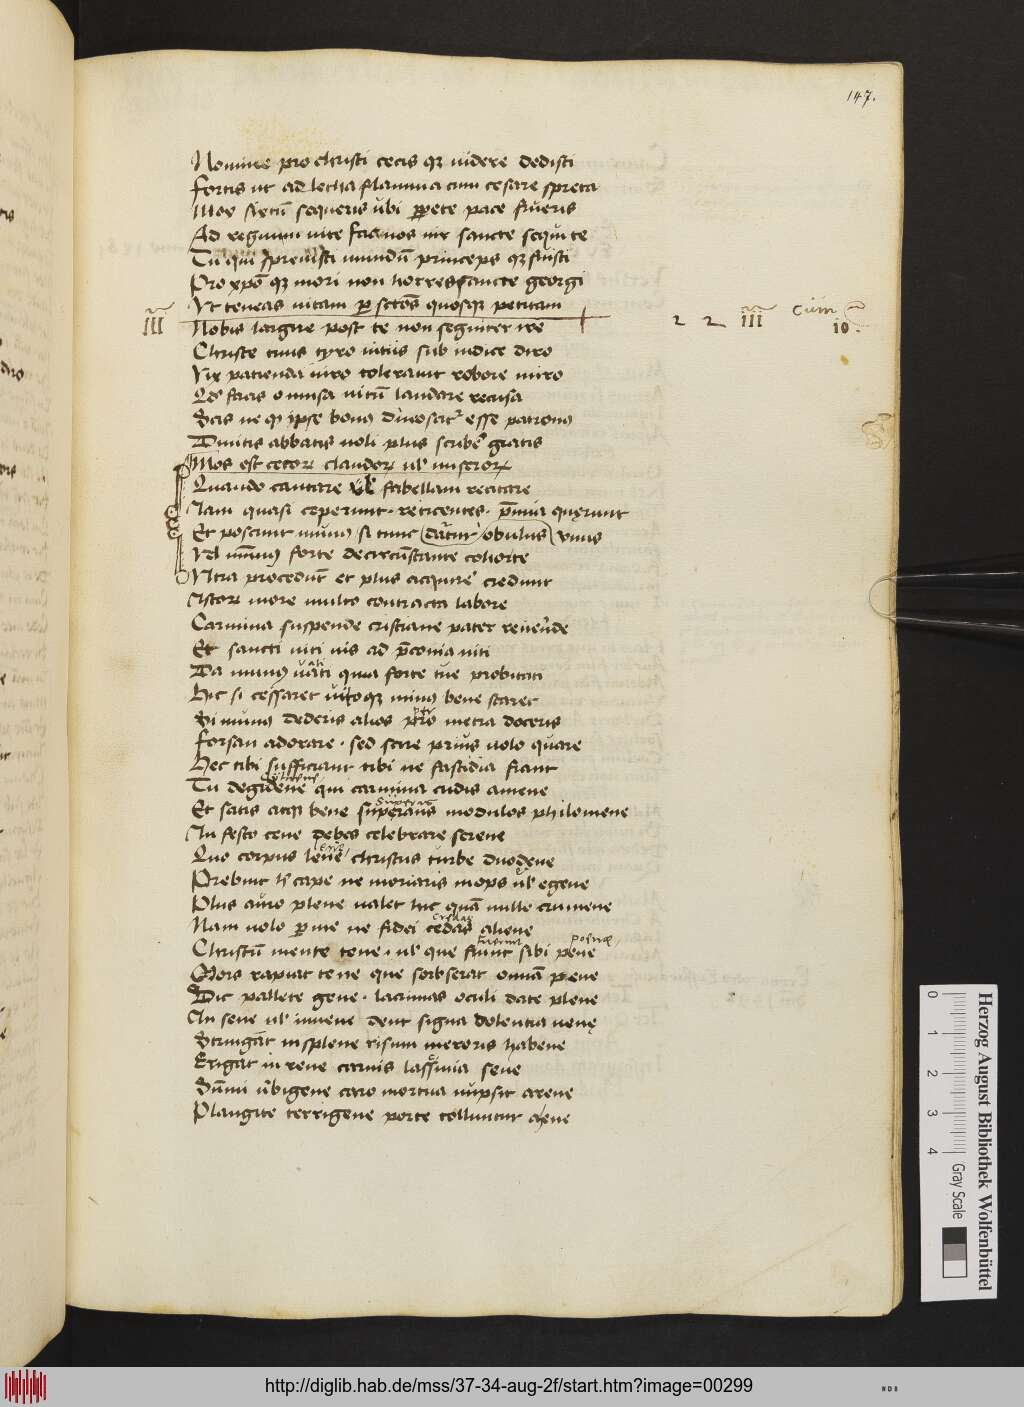 147.
Nomine pro christi cecis qz uidere dedisti
Fortis ut ad letha flamma cum cesare spreta
Mox sixtū sequeris ubi ꝑpete pace frueris
Ad regnum uite fac nos uir sancte sequi te
Tu qui spreuisti mundū princeps qz fuisti
Pro xpō qz mori non horres sancte georgi
Vt teneas uitam ꝑ sctōs quosqz petitam
III Nobis largire post te non segniter ire 2 2 III Cum 10.
Christe tuus tyro uitiis sub iudice diro
Vix patienda uiro tolerauit robore miro
Qd facis omissa uitū laudare recusa
Scis ne qz ipse bonus dinoscitr esse patronus
Diuitis abbatis noli plus scribe gratis
Mos est cetorum claudorum ul miserorum
Quando cantare ul fabellam recitare
Iam quasi ceperunt · reticentes · p̄mia quęrunt
Et poscunt munus si tunc datur obulus unus
Vel nummus forte de circūstante cohorte
Vltra procedunt et plus acquire credunt
Istorum more multo contracta labore
Carmina suspende cristiane pater reuerende
Et sancti uiti uis ad p̄conia niti
Da munus uati quia forte tue probitati
Hic si cessaret uitoqz minus bene staret
Si munus dederis alios pro metra doceris
Forsan adorare · sed scire prius uolo quare
Hec tibi sufficiant tibi ne fastidia fiant
Tu degidene qui carmina cudis amene
Et satis atqz bene superans modulos philomene
In festo cene debes celebrare serene
Quo corpus lene christus turbe duodene
Prebuit h cape ne moriaris inops ul egene
Plus auro plene ualet hic quam mille crumene
Nam uolo ꝑ me ne fidei credas aliene
Christū mente tene · ul que fiunt sibi pene
Mors rapiat te ne que sorbserat omnia pene
Dic pallete gene · lacrimas oculi date plene
In sene ul iuuene dent signa dolentia uenę
Stringāt in splene risum meroris habene
Erigāt in rene carnis lassamia sene
Sūmi ubigene caro mortua nupsit arene
Plangite terrigene porte tolluntur ahene
Herzog August Bibliothek Wolfenbüttel
Gray Scale
0 1 2 3 4
http://diglib.hab.de/mss/37-34-aug-2f/start.htm?image=00299